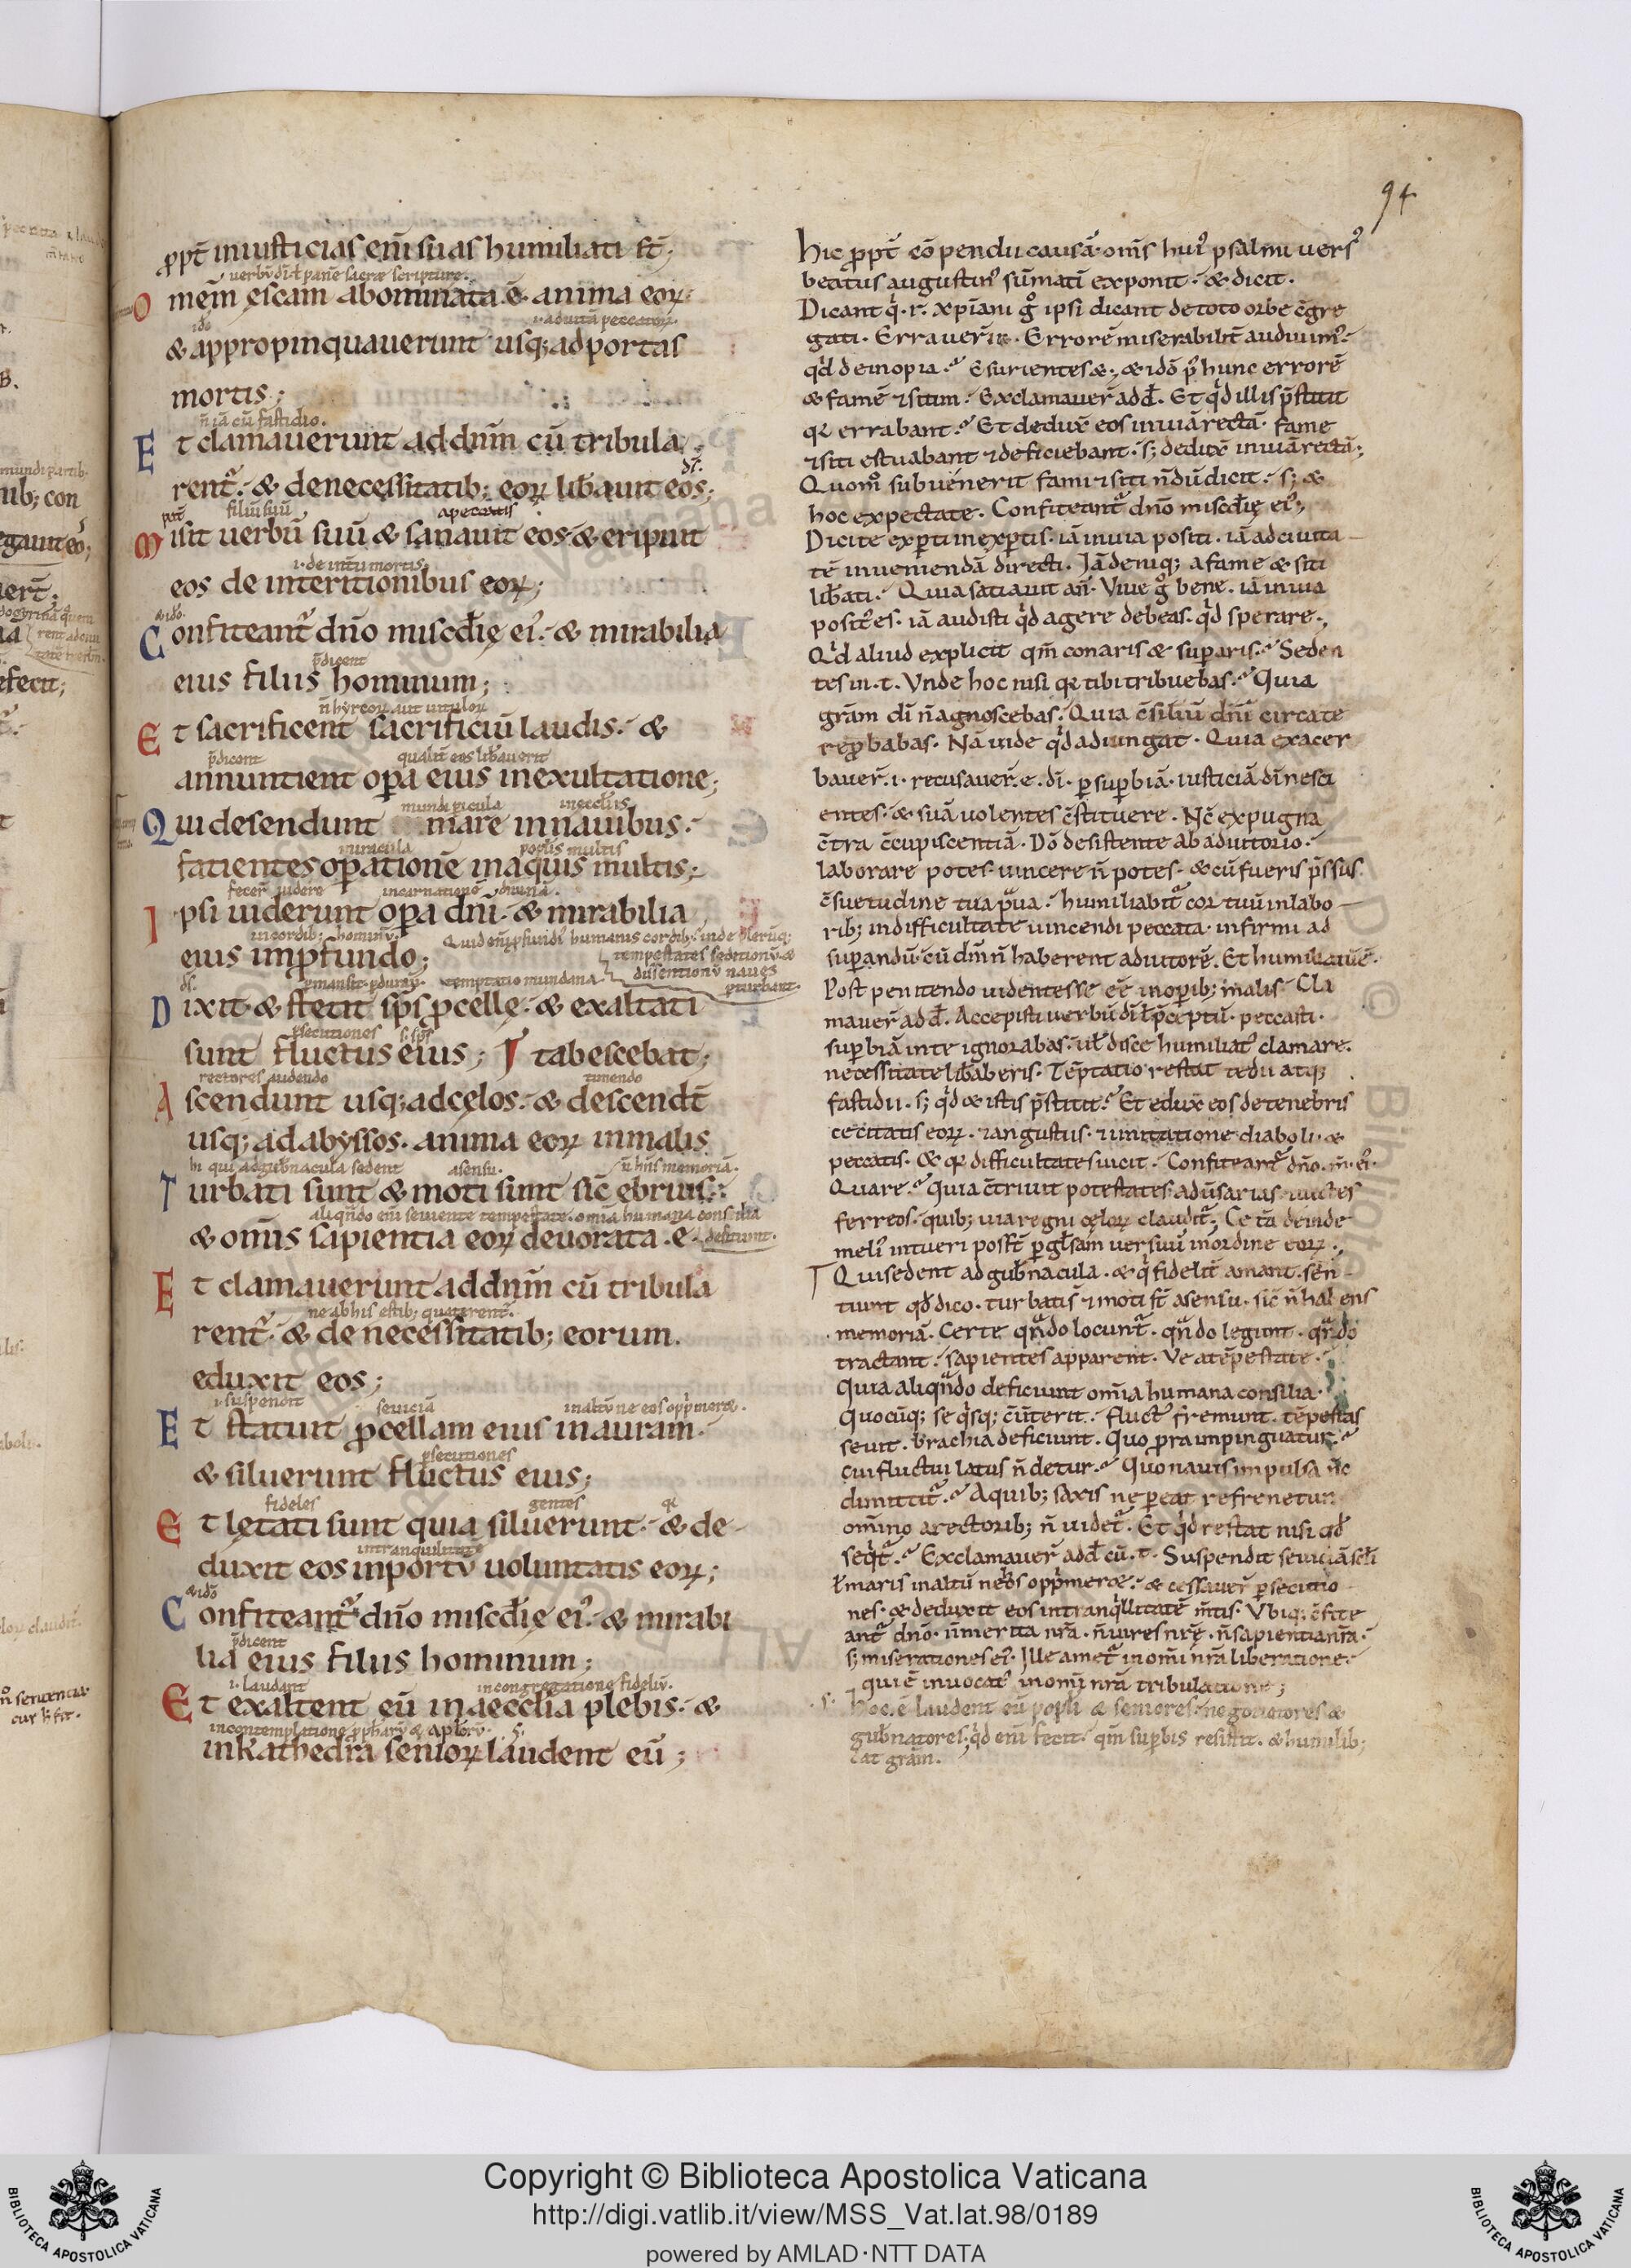 94
ꝓpt̄ iniusticias em̄ suas humiliati st̄;
uerbū dī ł panē sacræ scripture.
Omēm escam abominata ē anima eoꝝ
ido
i. ad uitā peccatoꝝ.
& appropinquauerunt usq; ad portas
mortis;
n̄ iā cū fastidio.
Et clamauerunt ad dnm̄ cū tribula
ds̄.
rent᷑. & denecessitatib; eoꝝ lib̄auit eos;
filiū suū
a peccatis
Misit uerbū suū & sanauit eos & eripuit
i. de int̄itu mortis.
eos de interitionibus eoꝝ;
& ido.
Confiteant᷑ dn̄o misc̄dię ei᷒. & mirabilia
p̄dicent
eius filius hominum;
n̄ hyrcoꝝ aut uituloꝝ
Et sacrificent sacrificiū laudis. &
p̄dicent
qualit̄ eos lib̄auerit
annuntient oꝑa eius inexultatione;
mundi ꝑicula
in eccl̄iis
Qui desendunt mare innauibus.
miracula
popl̄is multis
fatientes oꝑationē inaquis multis;
fecer̄ uidere
incarnationē diuinā.
Ipsi uiderunt oꝑa dnī. & mirabilia
in cordib; hominū.
Quid em̄ ꝓfundi᷒ humanis cordib; inde plerūq;
tempestates seditionū &
dissentionū naues
ꝑturbant.
eius inꝓfundo;
ds̄.
ꝑmansit. ꝑdurauit.
temptatio mundana
Dixit & stetit sp̄s ꝓcelle. & exaltati
ꝑsecutiones
s. sp̄s
sunt fluctus eius; ⁊ tabescebat;
rectores audendo
timendo
Ascendunt usq; adcęlos. & descendt̄
usq; adabyssos. anima eoꝝ inmalis
hi qui ad gub̄nacula sedent
asensu.
n̄ hn̄s memoriā.
Turbati sunt & moti sunt sic̄ ebrius:
aliqn̄do em̄ seuiente tempestate. omīa humana consilia
& omīs sapientia eoꝝ deuorata . ē.
deficiunt.
Et clamauerunt addnm̄ cū tribula
ne ab his estib; quaterent᷑.
rent᷑. & de necessitatib; eorum.
eduxit eos;
i. suspendit
seuiciā
in altū ne eos opp̄meræ.
Et statuit ꝓcellam eius inauram.
ꝑsecutiones
& siluerunt fluctus eius;
fideles
gentes
qꝛ
Et lętati sunt quia siluerunt. & de-
in tranquilitatē
duxit eos inportū uoluntatis eoꝝ;
& ido
Confiteant᷑ dn̄o misc̄dię ei᷒. & mirabi
p̄dicent
lia eius filius hominum;
i. laudant
in congregatione fideliū.
Et exaltent eū inaecclīa plebis. &
in contemplatione ꝓph̄arū & apl̄orū.
s̄.
inkathedra senioꝝ laudent eū;
Hic ꝓpt̄ cōpendii causā. oms̄ hui᷒ psalmi vers᷒
beatus augustin᷒ sūmatī exponit. & dicit.
Dicant q̇. r. xpiani ḡ ipsi dicant de toto orbe c̄gre
gati. Errauer̄ in. Errorē miserabilit̄ audiuim᷒.
qḋ de inopia.? Esurientes &. & idō ꝑ hunc errorē
& famē ⁊ sitim. Exclamauer̄ add̄. Et qḋ illis p̄stitit
qꝛ errabant.? Et dedux̄ eos inuiā rectā. fame
⁊ siti estuabant ⁊ deficiebant. s; dedux̄ inuiā rectā;
Quom̊ subuenerit fami ⁊ siti n̄dū dicit. s; &
hoc expectate. Confiteant᷑ dn̄o misc̄dię ei᷒,
Dicite exꝑti inexꝑtis. iā inuia positi. iā ad ciuita
tē inueniendā directi. Iā deniq; a fame & siti
lib̄ati. Quia satiauit an̄. Viue ḡ bene. iā inuia
posit᷒ es. iā audisti qḋ agere debeas. qḋ sperare.,
Qḋ aliud explicit qm̄ conaris & suꝑaris.? Seden
tes in. t. Vnde hoc nisi qꝛ tibi tribuebas.? Quia
grām dī n̄ agnoscebas. Quia c̄siliū dnī circa te
reꝓbabas. Nā uide qḋ adiungat. Quia exacer
bauer̄. i. recusauer̄. e. dī. ꝑ suꝑbiā. iusticiā dī nesci
entes. & suā uolentes c̄stituere. Nc̄ expugna
c̄tra c̄cupiscentiā. Dō desistente ab adiutorio.
laborare potes. uincere n̄ potes. & cū fueris p̄ssus
c̄suetudine tua praua. humiliabit᷑ cor tuū inlabo-
rib; indifficultate uincendi peccata. infirmi ad
suꝑandū. cū dm̄ n̄ haberent adiutorē. Et humiliauē.
Post penitendo uidentes se eē inoꝑib; malis Cla
mauer̄ add̄. Accepisti uerbū dī ł p̄ceptū. peccasti.
suꝑbiā inte ignorabas. uł disce humiliat᷒ clamare.
necessitate lib̄aberis. Tēptatio restat tedii atq;
fastidii. s; qḋ & istis p̄stitit.? Et edux̄ eos detenebris
cecitatis eoꝝ. ⁊ angustiis. ⁊ imitatione diaboli. &
peccatis. & qꝛ difficultates uicit. Confiteant᷑ dn̄o. m̄. ei᷒.
Quare.? Quia c̄triuit potestates adūsarias uectes
ferreos. quib; uia regni cęloꝝ claudit᷑. Cet̄a deinde
meli᷒ intueri post̄ ꝑ glosam uersuū inordine eoꝝ.,
Qui sedent ad gub̄nacula. & q̇ fidelit̄ amant. sen
tiunt qd̄ dico. turbatis ⁊ moti st̄ asensu. sic̄ n̄ habens
memoriā. Certe qn̄do locunt᷑. qn̄do legunt. qn̄do
tractant. sapientes apparent. Ve a tēpestate.
Quia aliqn̄do deficiunt omīa humana consilia.
Quocūq; se q̇sq; c̄ūterit. fluct᷒ fremunt. tēpestas
seuit. brachia deficiunt. Quo prora impinguatur.?
cui fluctui latus n̄ detur.? Quo nauis impulsa n̄c
dimittit᷑.? Aquib; saxis ne ꝑeat refrenetur
omīno arectorib; n̄ uidet᷑. Et qḋ restat nisi qd̄
seq̇t᷑.? Exclamauer̄ add̄ cū. t. Suspendit seuiciā scl̄i
ł maris inaltū ne nos opp̄meræ. & cessauer̄ ꝑsecutio
nes. & deduxit eos intranq̇llitatē mtis̄. Vbiq; c̄fite
ant᷑ dn̄o. n̄ merita nr̄a. n̄ uires nr̄ę. n̄ sapientia nr̄a.
s; miserationes ei᷒. Ille amet᷑ in omī nr̄a liberatione.
qui ē inuocat᷒ in omī nr̄a tribulatione;
s. hoc. ē laudent eū popl̄i & seniores. negotiatores &
gub̄natores; qḋ em̄ fecit. qm̄ suꝑbis resistit. & humilib;
dat grām.
Copyright © Biblioteca Apostolica Vaticana
http://digi.vatlib.it/view/MSS_Vat.lat.98/0189
powered by AMLAD·NTT DATA
BIBLIOTECA APOSTOLICA VATICANA
BIBLIOTECA APOSTOLICA VATICANA